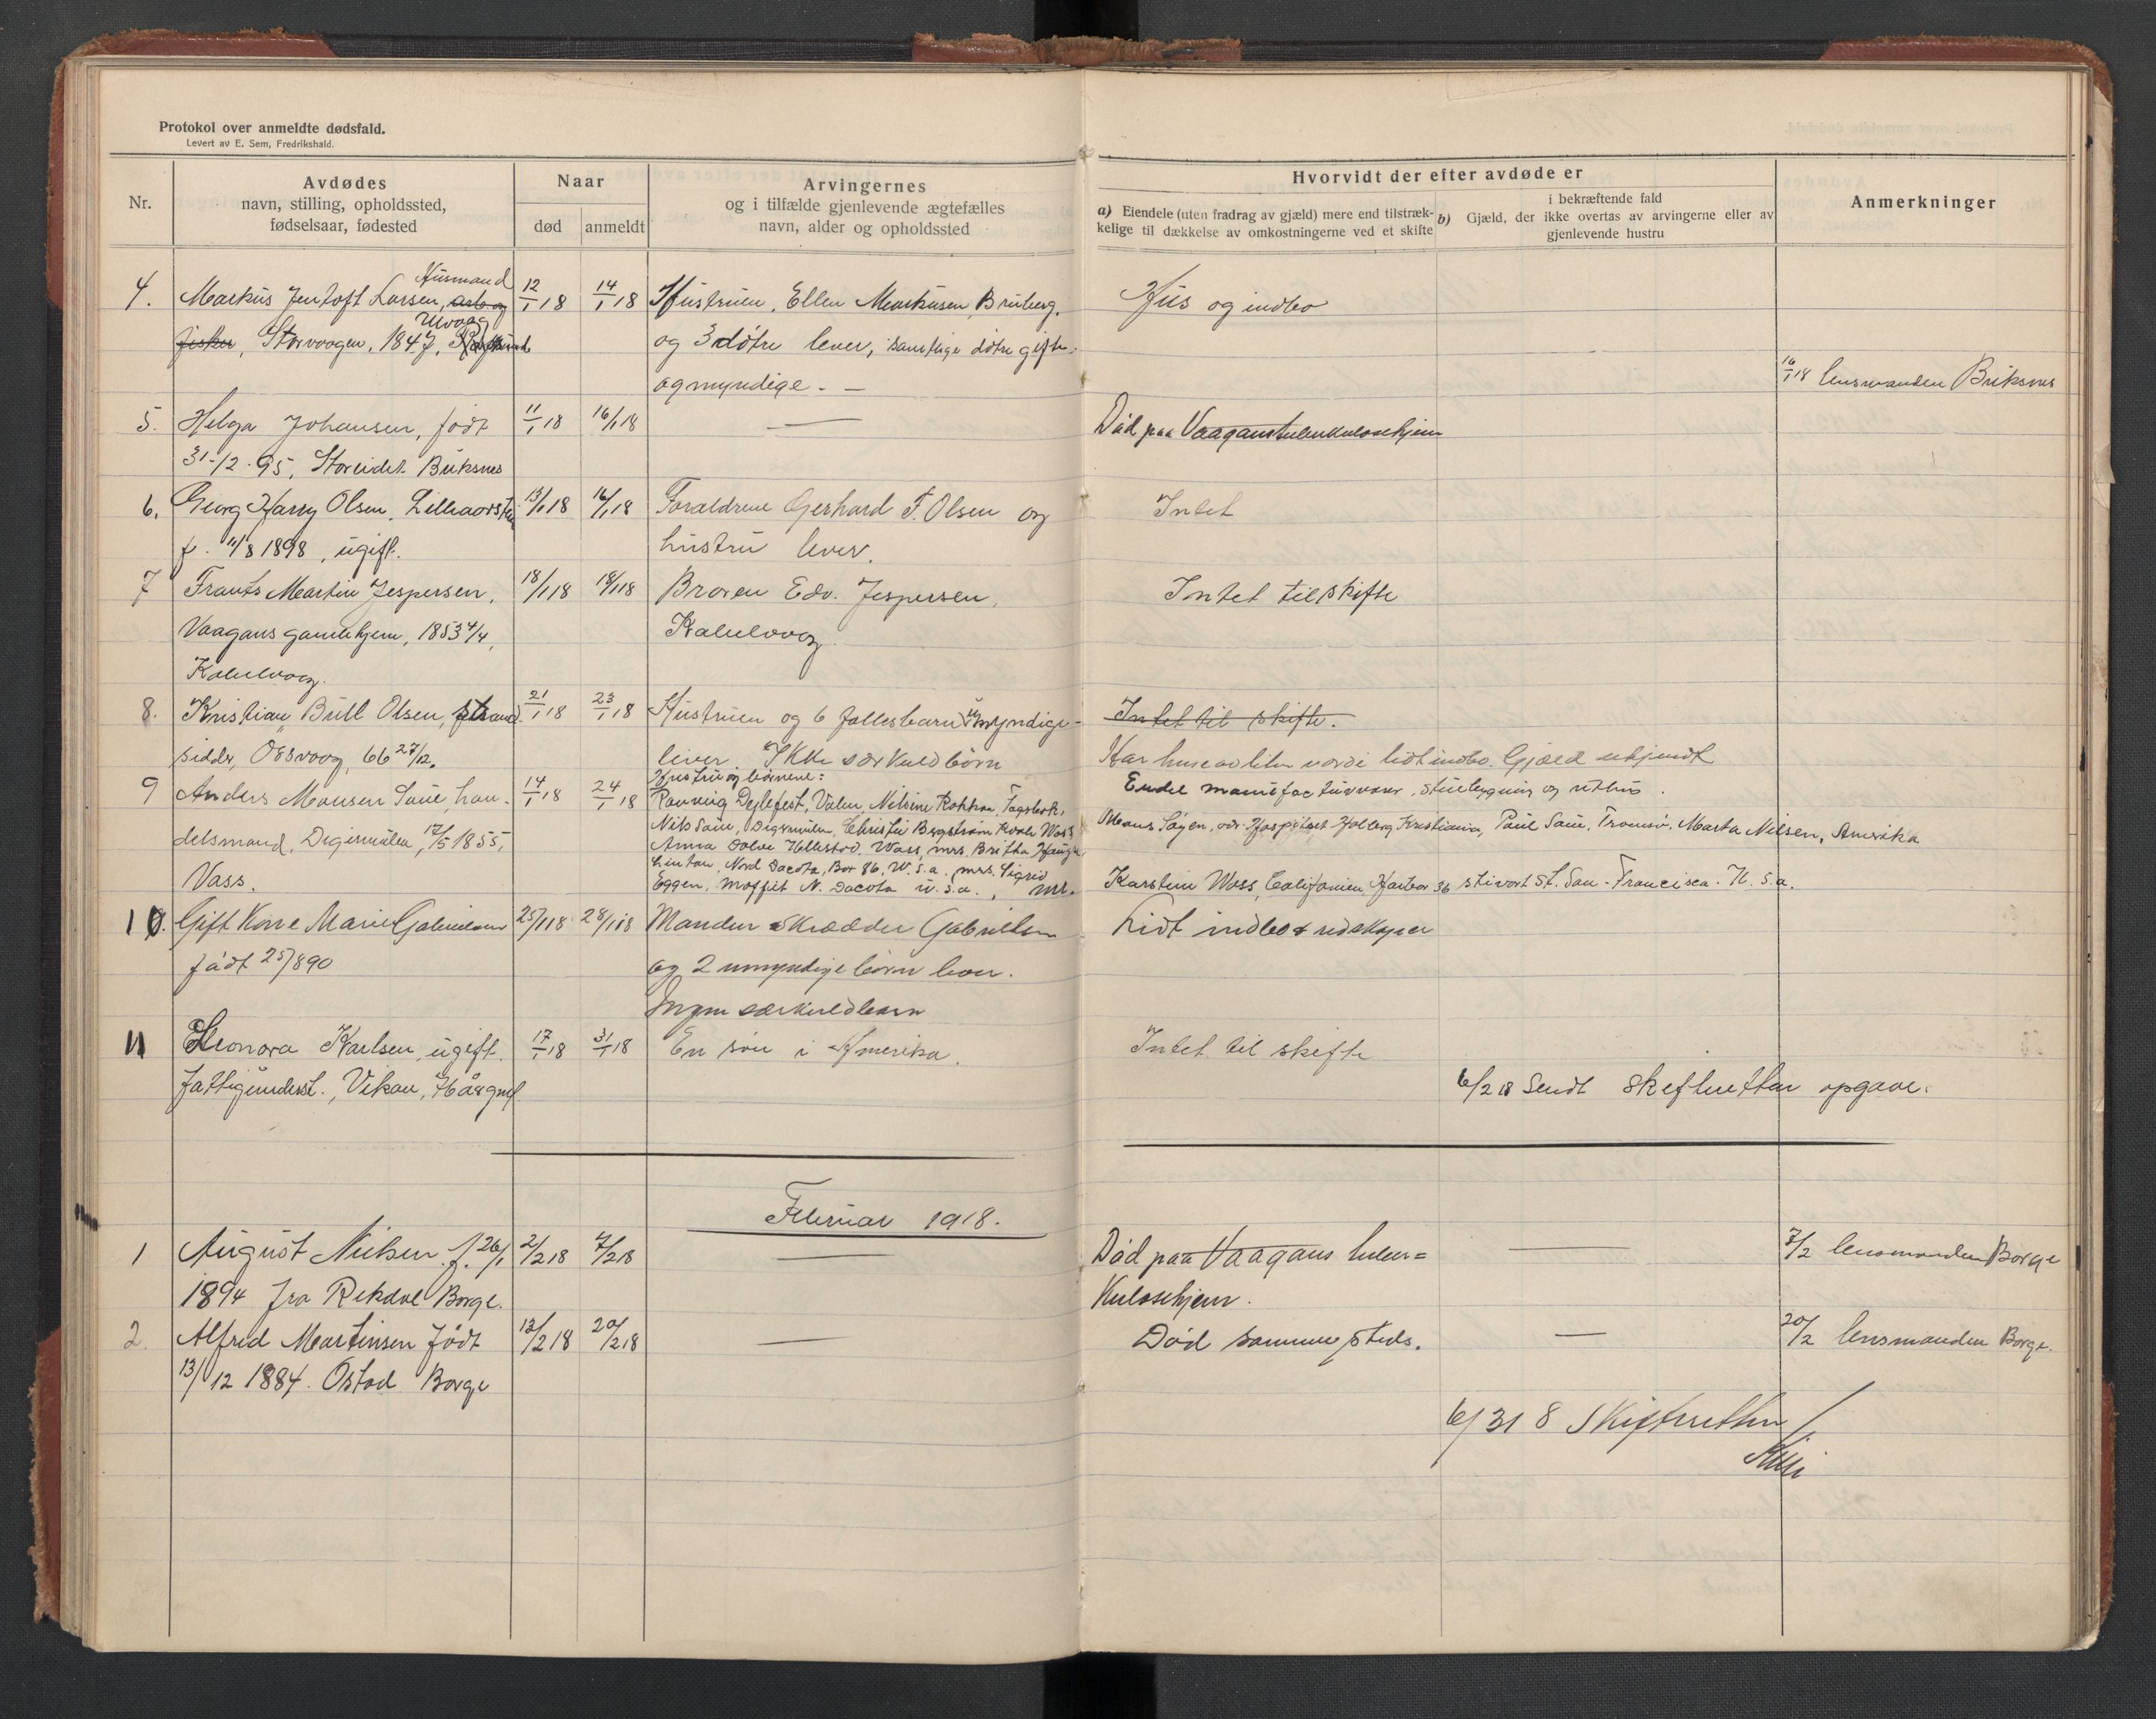 Protokol over anmeldte dødsfald.
Levert av E. Sem, Fredrikshald.
Nr.
Avdødes
navn, stilling, opholdssted,
fødselsaar, fødested
Naar
død anmeldt
Arvingernes
og i tilfælde gjenlevende ægtefælles
navn, alder og opholdssted
Hvorvidt der efter avdøde er
a) Eiendele (uten fradrag av gjæld) mere end tilstræk-
kelige til dækkelse av omkostningerne ved et skifte
i bekræftende fald
b) Gjæld, der ikke overtas av arvingerne eller av
gjenlevende hustru
Anmerkninger
Husmand
4. Markus Jentoft Larsen, arb og 12/1 18 14/1 18 Hustruen, Ellen Markusen, Bruberg. Hus og indbo
Ulvaag
fisker, Storvaagen, 1847, og 3 døtre lever, samtlige døtre gifte
og myndige. — 16/1 18 lensmanden Buksnes
5. Helga Johansen, født 11/1 18 16/1 18 — Død paa Vaagans tuberkulosehjem
31-12-95, Storeidet Buksnes
6. Georg Harry Olsen, 13/1 18 16/1 18 Forældrene Gerhard F. Olsen og Intet
f. 11/8 1898, ugift. hustru lever.
7 Frants Martin Jespersen, 18/1 18 18/1 18 Broren Edv. Jespersen, Intet til skifte
Vaagans gamlehjem, 1853 4/4, Kabelvaag.
Kabelvaag.
8. Kristian Bull Olsen, strand- 21/1 18 23/1 18 Hustruen og 6 fellesbarn umyndige Intet til skifte.
sidder, Ørsvaag, 66 27/12. lever. Ikke særkuldbörn Har huse av liten værdi lidt indbo. Gjæld ukjendt
9 Anders Monsen Saue han- 14/1 18 24/1 18 Hustru og börnene: Endel manufacturvarer, stuebygning og uthus.
Rannveig Deglefest, Valen, Nilsine Rokkon,
Nils Saue, Digermulen, Christie Bergstrøm Kvale Voss
delsmand, Digermulen, 17/5 1855, Anna Dolve Hellestod, Wass, mrs. Britha
Linton, Nord Dacota, Box 86, W. S. a. mrs. Sigrid
Vass. Eggen, Moffit N. Dacota u. S. a., mr.
Mons Søyen, adr. Hospitset Holberg Kristiania, Paul Saue, Tromsö, Marta Nilsen, Amerika
Karstein Woss, Califonien, Harbor 36 stivort St. San-Francisca. U. S. a.
10. Gift Kone Marie Gabrielsen 25/1 18 28/1 18 Manden skrædder Gabrielsen Lidt indbo & redskaper
födt 25/890 og 2 umyndige börn lever.
Ingen særkuldbarn
11 Leonora Karlsen, ugift. 17/1 18 31/1 18 En sön i Amerika. Intet til skifte
fattigunderst., Vikan, 76 år gml.
6/2 18 Sendt skifteretten opgave.
Februar 1918.
1 August Nielsen f. 26/1 2/2 18 7/2 18 — Död paa Vaagans tuber= — 7/2 lensmanden Borge
1894 fra Rekdal Borge. kulosehjem.
2. Alfred Martinsen födt 12/2 18 20/2 18 — Död samme steds. — 20/2 lensmanden Borge.
13/12 1884. Östad Borge
6/3 18 Skifteretten